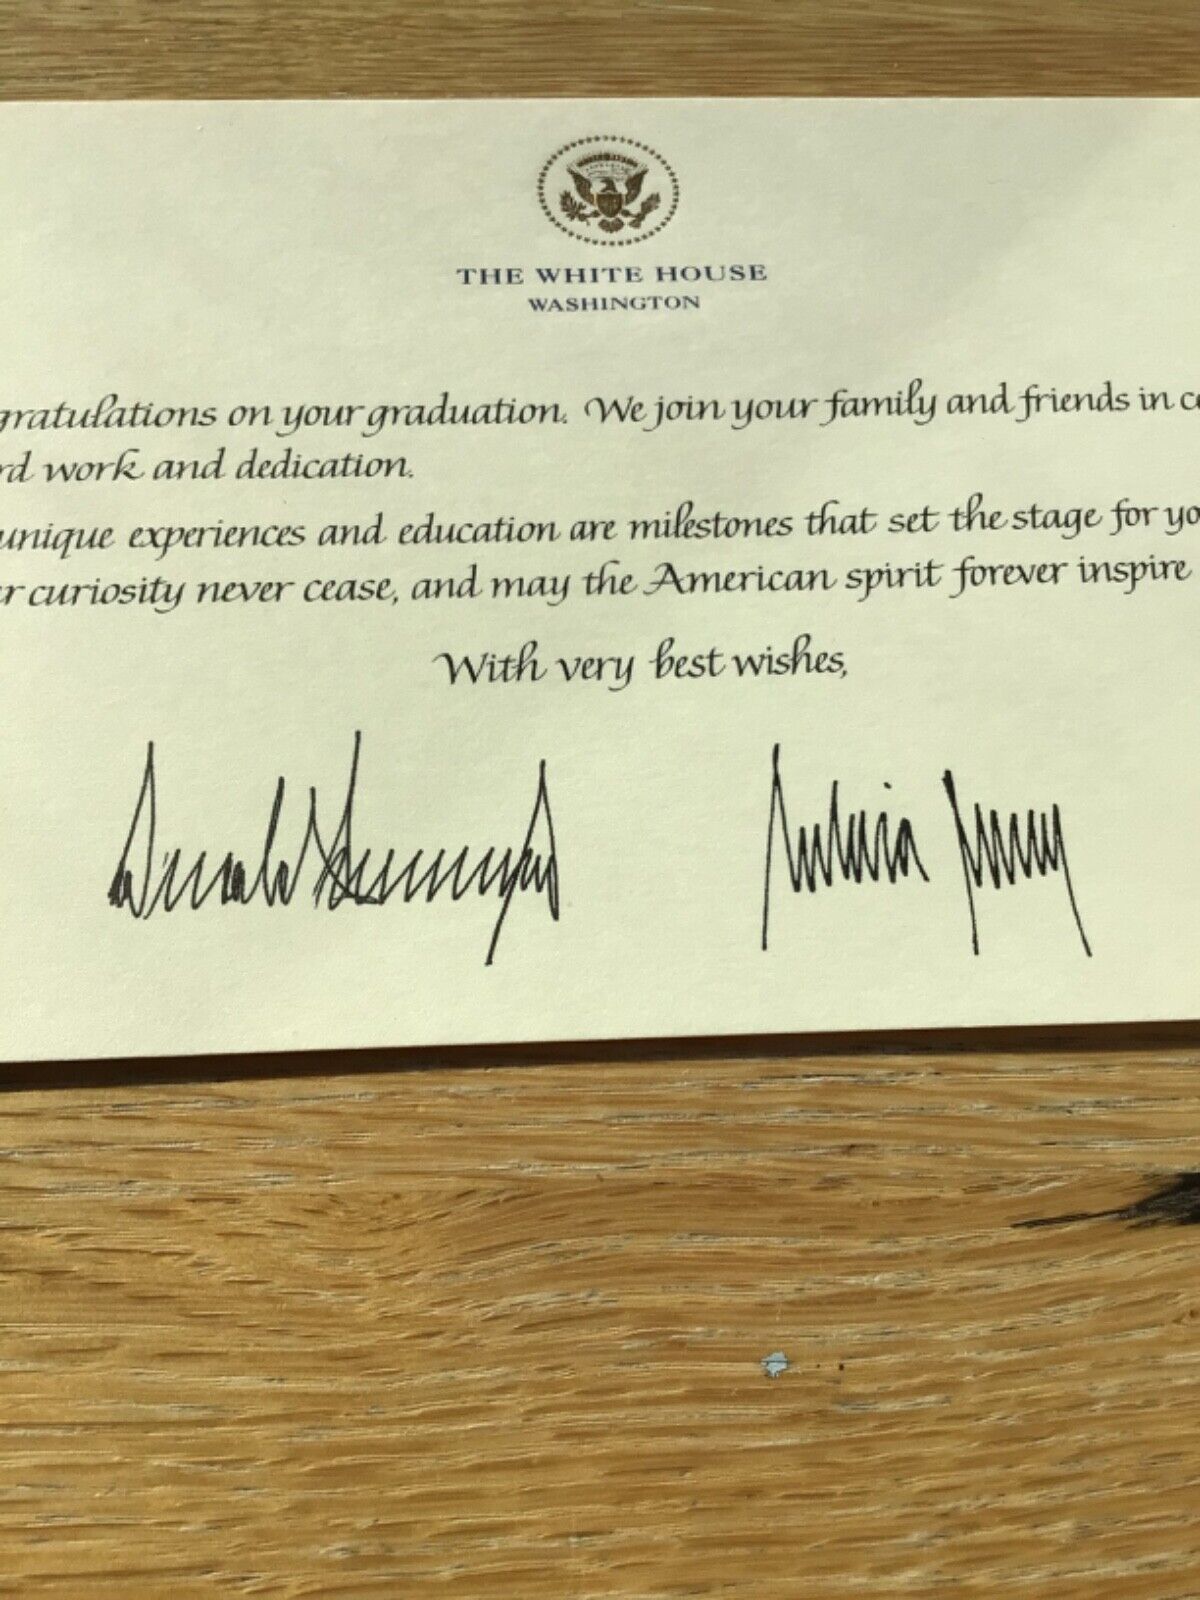 THE WHITE HOUSE
WASHINGTON
gratulations on your graduation. We join your family and friends in ce
rd work and dedication.
unique experiences and education are milestones that set the stage for yo
r curiosity never cease, and may the American spirit forever inspire
With very best wishes,
Donald Trump Melania Trump